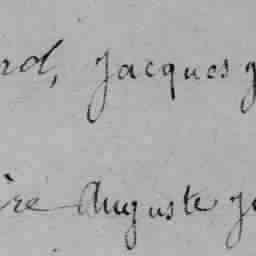 rd, Jacques
ire Auguste